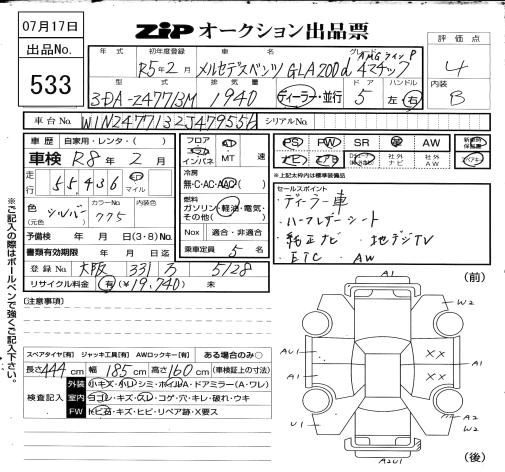 07月17日
ZiP オークション出品票
出品No.
533
年式
初年度登録
R5年2月
車名
メルセデスベンツ GLA200d 4マチック
グレード
AMGラインP
評価点
4
内装
B
型式
3DA-247713M
排気量
1940
ディーラー・並行
ドア
5
ハンドル
左・右
車台No.
W1N2477132J479556
シリアルNo.
車歴 自家用・レンタ・( )
車検 R8年 2月
走行
55,436
km マイル
色(元色)
シルバー
カラーNo.
775
内装色
予備検 年 月 日(3・8)No.
書類有効期限 年 月 日迄
登録No. 大阪 331 ろ 5128
リサイクル料金 有(¥19,740) 未
フロア
コラム
インパネ
AT
MT
速
冷房
無・C・AC・AAC
燃料
ガソリン・軽油・電気・その他( )
Nox 適合・非適合
乗車定員 5 名
PS PW SR 革 AW
ナビ エアB 社外ナビ 社外AW
★上記太枠内は標準装備品
セールスポイント
・ディーラー車
・ハーフレザーシート
・純正ナビ ・地デジTV
・ETC ・AW
[注意事項]
スペアタイヤ[有] ジャッキ工具[有] AWロックキー[有] ある場合のみ○
長さ 444 cm 幅 185 cm 高さ 160 cm (車検証上の寸法)
検査記入
外装 小キズ・小凹・シミ・ホイルA・ドアミラー(A・ワレ)
室内 ヨゴレ・キズ・スレ・コゲ・穴・キレ・破れ・ウキ
FW トビ石・キズ・ヒビ・リペア跡・X要ス
※ご記入の際はボールペンで強くご記入下さい。
(前)
A1
W2
AU1
A1
XX
XX
A1
U1
A2
W2
A2U1
(後)